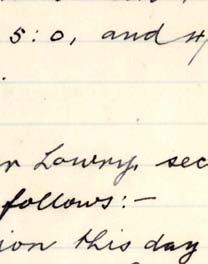 5:0, and
r Lowry, sec
follows:—
ion this day